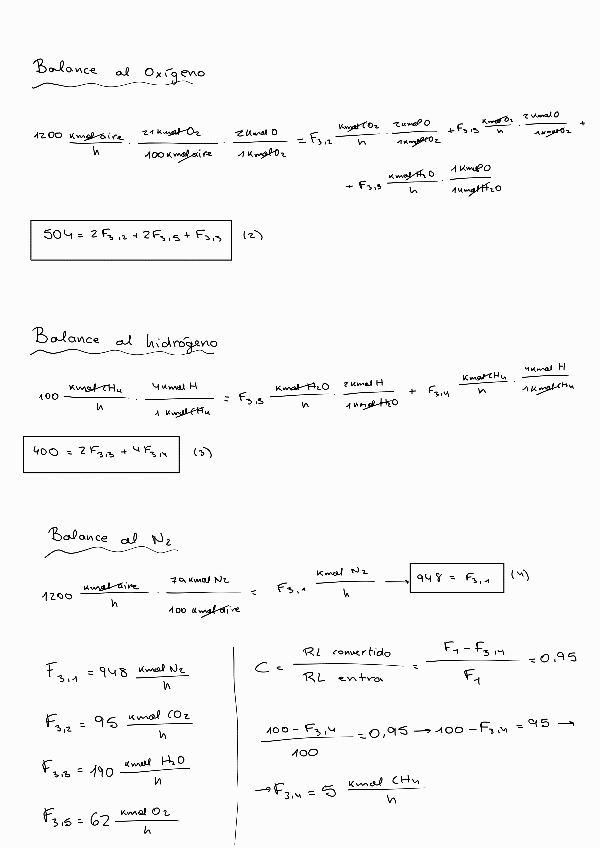 Balance al Oxígeno
1200 kmol aire/h · 21 kmol O2/100 kmol aire · 2 kmol O/1 kmol O2 = F3,2 kmol CO2/h · 2 kmol O/1 kmol CO2 + F3,5 kmol O2/h · 2 kmol O/1 kmol O2 +
+ F3,3 kmol H2O/h · 1 kmol O/1 kmol H2O
504 = 2F3,2 + 2F3,5 + F3,3 (2)
Balance al hidrógeno
100 kmol CH4/h · 4 kmol H/1 kmol CH4 = F3,3 kmol H2O/h · 2 kmol H/1 kmol H2O + F3,4 kmol CH4/h · 4 kmol H/1 kmol CH4
400 = 2F3,3 + 4F3,4 (3)
Balance al N2
1200 kmol aire/h · 79 kmol N2/100 kmol aire = F3,1 kmol N2/h → 948 = F3,1 (4)
F3,1 = 948 kmol N2/h
F3,2 = 95 kmol CO2/h
F3,3 = 190 kmol H2O/h
F3,5 = 62 kmol O2/h
C = RL convertido/RL entra = F1 - F3,4/F1 = 0,95
100 - F3,4/100 = 0,95 → 100 - F3,4 = 95 →
→ F3,4 = 5 kmol CH4/h